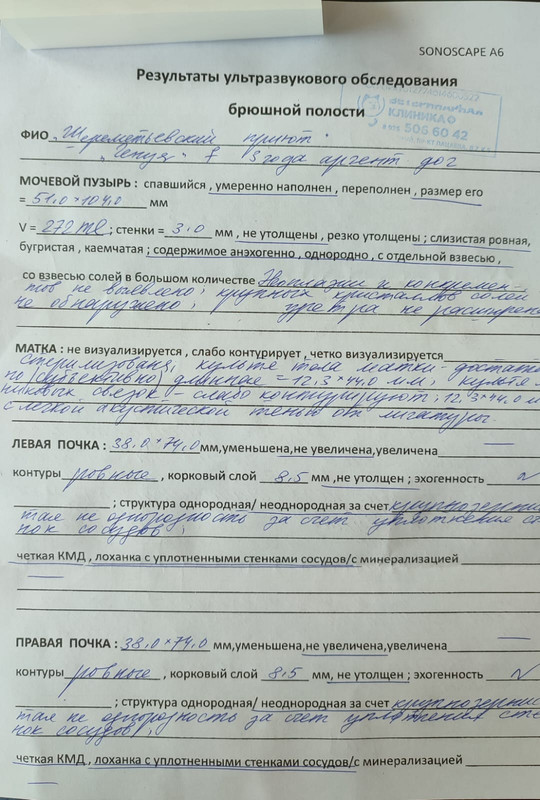 SONOSCAPE A6
Результаты ультразвукового обследования
брюшной полости
ВЕТЕРИНАРНАЯ
КЛИНИКА
506 60 42
ФИО "Шереметьевский приют"
f 3 года аргент дог
МОЧЕВОЙ ПУЗЫРЬ : спавшийся , умеренно наполнен , переполнен , размер его
= 51.0*104.0 мм
V = 272 ml ; стенки = 3.0 мм , не утолщены , резко утолщены ; слизистая ровная,
бугристая , каемчатая ; содержимое анэхогенно , однородно , с отдельной взвесью ,
со взвесью солей в большом количестве Неоплазии и конкремен-
тов не выявлено; крупных кристаллов солей
не обнаружено; уретра не расширена
МАТКА : не визуализируется , слабо контурирует , четко визуализируется
стерилизована, культя тела матки - достаточ
но (субъективно) длинная = 12,3*44.0 мм; культя
никовых связок - слабо контурируют; 12,3*44.0 м
с легкой акустической тенью от лигатуры.
ЛЕВАЯ ПОЧКА : 38.0*74.0 мм,уменьшена,не увеличена,увеличена —
контуры ровные , корковый слой 8,5 мм ,не утолщен ; эхогенность N
; структура однородная/ неоднородная за счет крупнозернис
тая не однородность за счет уплотнения сте
нок сосудов ;
четкая КМД , лоханка с уплотненными стенками сосудов/с минерализацией
—
ПРАВАЯ ПОЧКА : 38.0*74.0 мм,уменьшена,не увеличена,увеличена —
контуры ровные , корковый слой 8.5 мм , не утолщен ; эхогенность N
; структура однородная/ неоднородная за счет крупнозернис
тая не однородность за счет уплотнения сте
нок сосудов ;
четкая КМД , лоханка с уплотненными стенками сосудов/с минерализацией
—